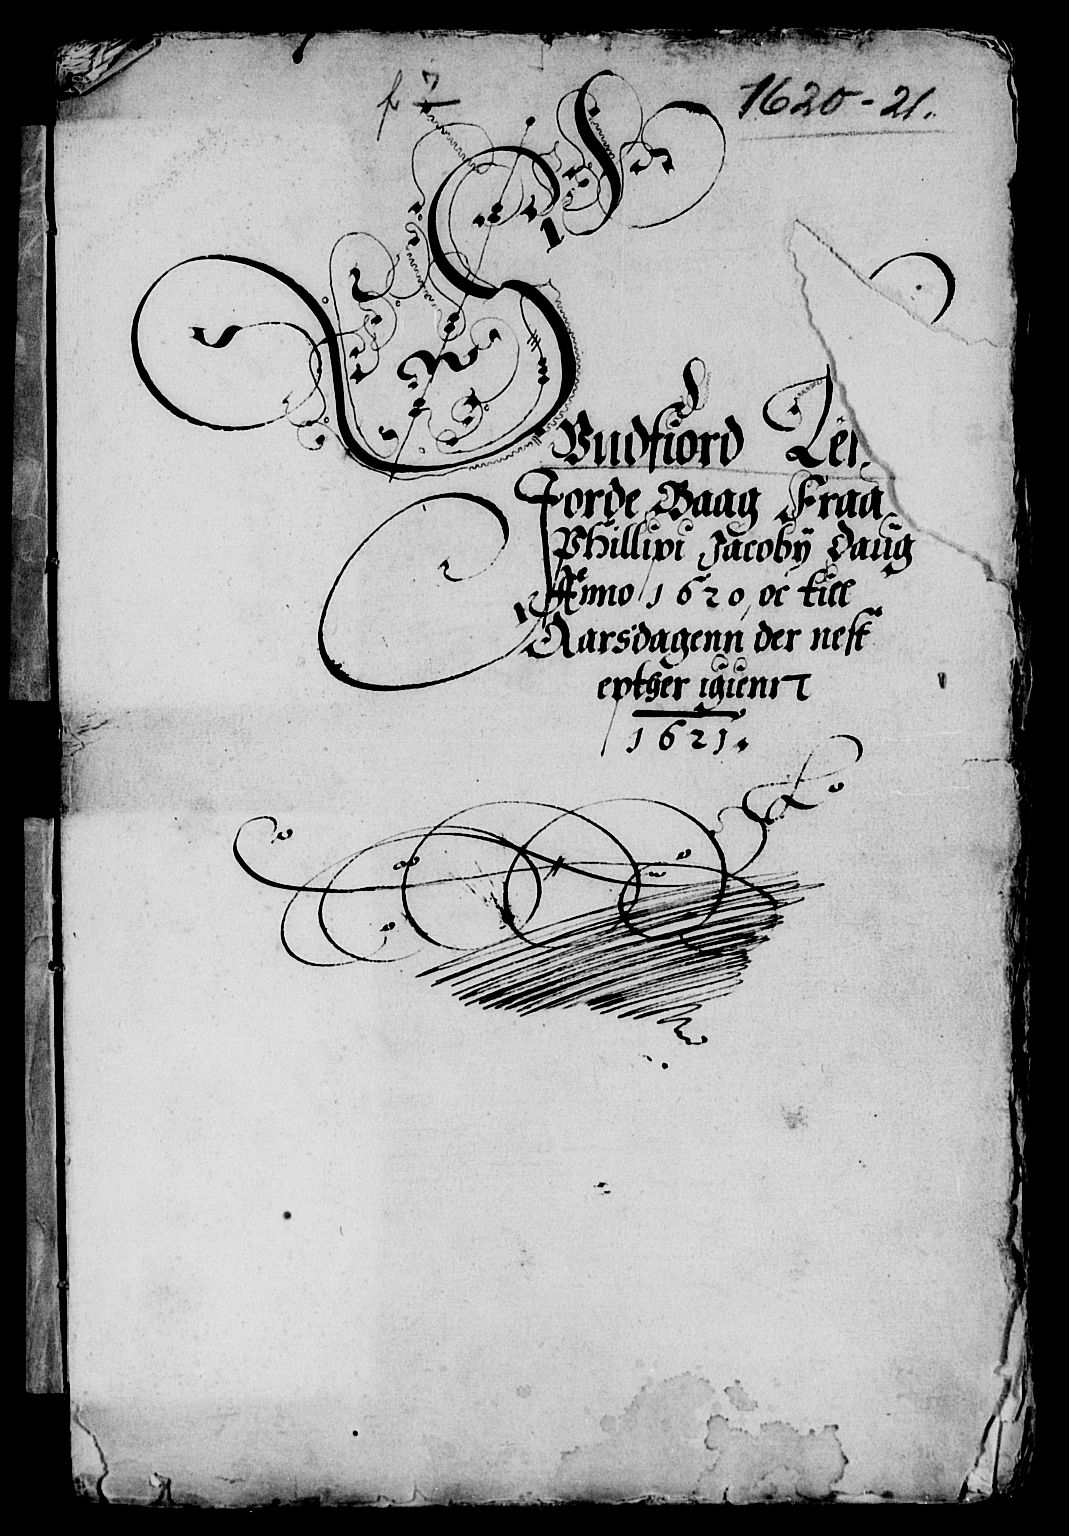 1620-21.
Sundfiord Len
Jorde Baag Fraa
Phillipi Jacobÿ daug
Anno 1620, oc till
Aarsdagenn der nest
epther igienn
1621.